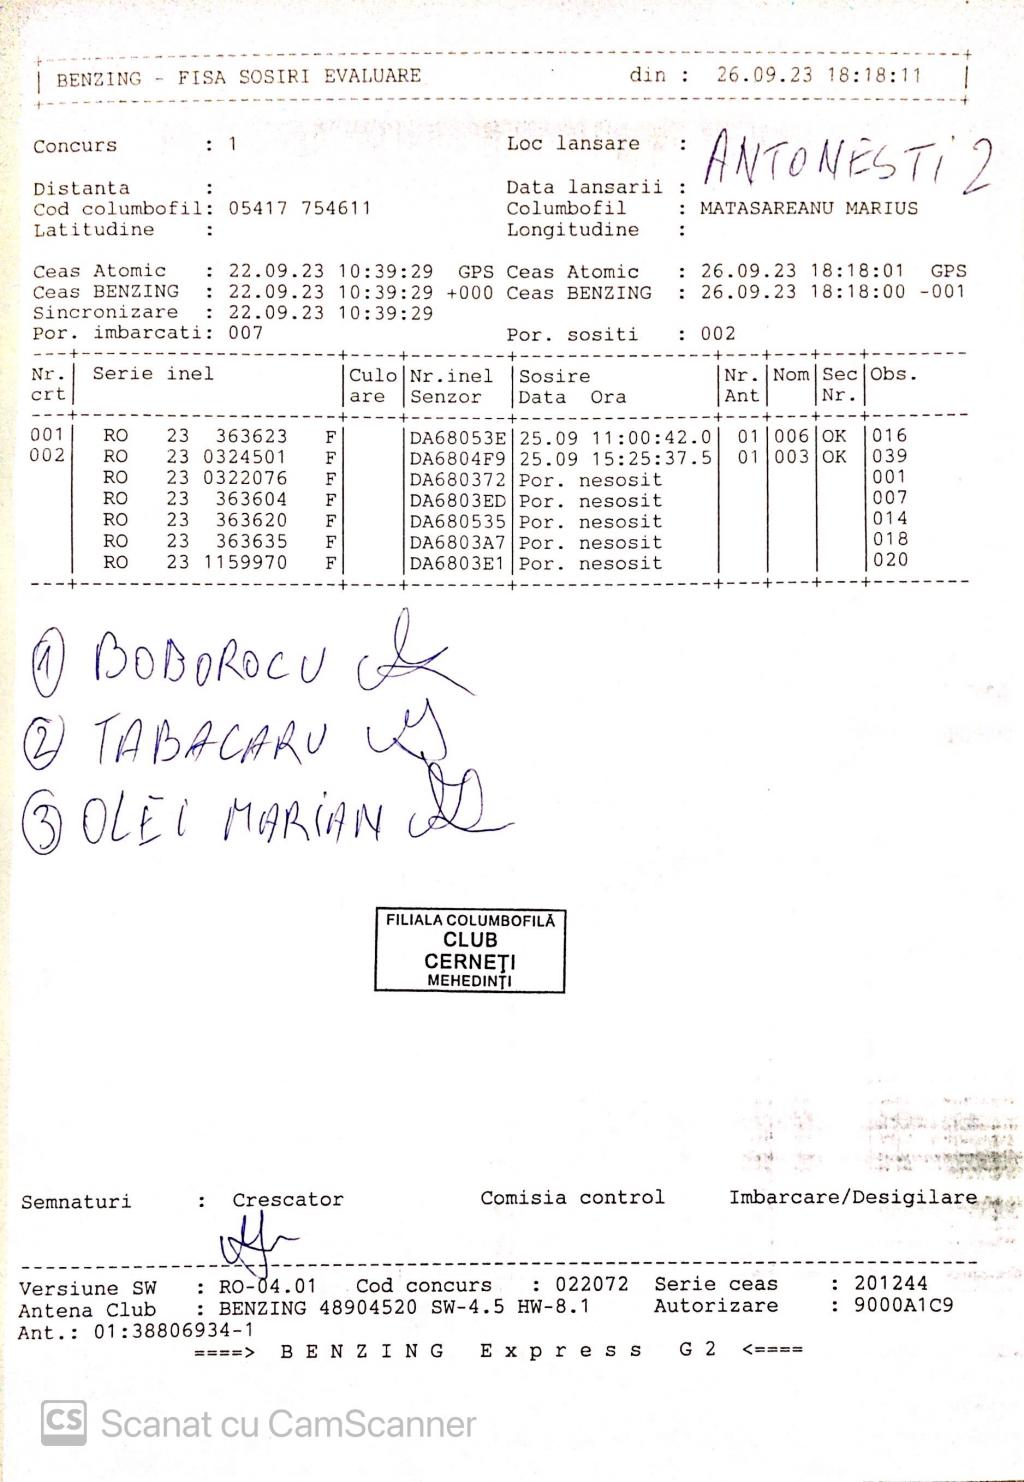 BENZING - FISA SOSIRI EVALUARE din : 26.09.23 18:18:11
Concurs : 1 Loc lansare : ANTONESTI 2
Distanta : Data lansarii :
Cod columbofil: 05417 754611 Columbofil : MATASAREANU MARIUS
Latitudine : Longitudine :
Ceas Atomic : 22.09.23 10:39:29 GPS Ceas Atomic : 26.09.23 18:18:01 GPS
Ceas BENZING : 22.09.23 10:39:29 +000 Ceas BENZING : 26.09.23 18:18:00 -001
Sincronizare : 22.09.23 10:39:29
Por. imbarcati: 007 Por. sositi : 002
Nr. Serie inel Culo Nr.inel Sosire Nr. Nom Sec Obs.
crt are Senzor Data Ora Ant Nr.
001 RO 23 363623 F DA68053E 25.09 11:00:42.0 01 006 OK 016
002 RO 23 0324501 F DA6804F9 25.09 15:25:37.5 01 003 OK 039
RO 23 0322076 F DA680372 Por. nesosit 001
RO 23 363604 F DA6803ED Por. nesosit 007
RO 23 363620 F DA680535 Por. nesosit 014
RO 23 363635 F DA6803A7 Por. nesosit 018
RO 23 1159970 F DA6803E1 Por. nesosit 020
1 BOBOROCU
2 TABACARU
3 OLEI MARIAN
FILIALA COLUMBOFILĂ
CLUB
CERNEȚI
MEHEDINȚI
Semnaturi : Crescator Comisia control Imbarcare/Desigilare
Versiune SW : RO-04.01 Cod concurs : 022072 Serie ceas : 201244
Antena Club : BENZING 48904520 SW-4.5 HW-8.1 Autorizare : 9000A1C9
Ant.: 01:38806934-1
====> BENZING Express G2 <====
CS Scanat cu CamScanner